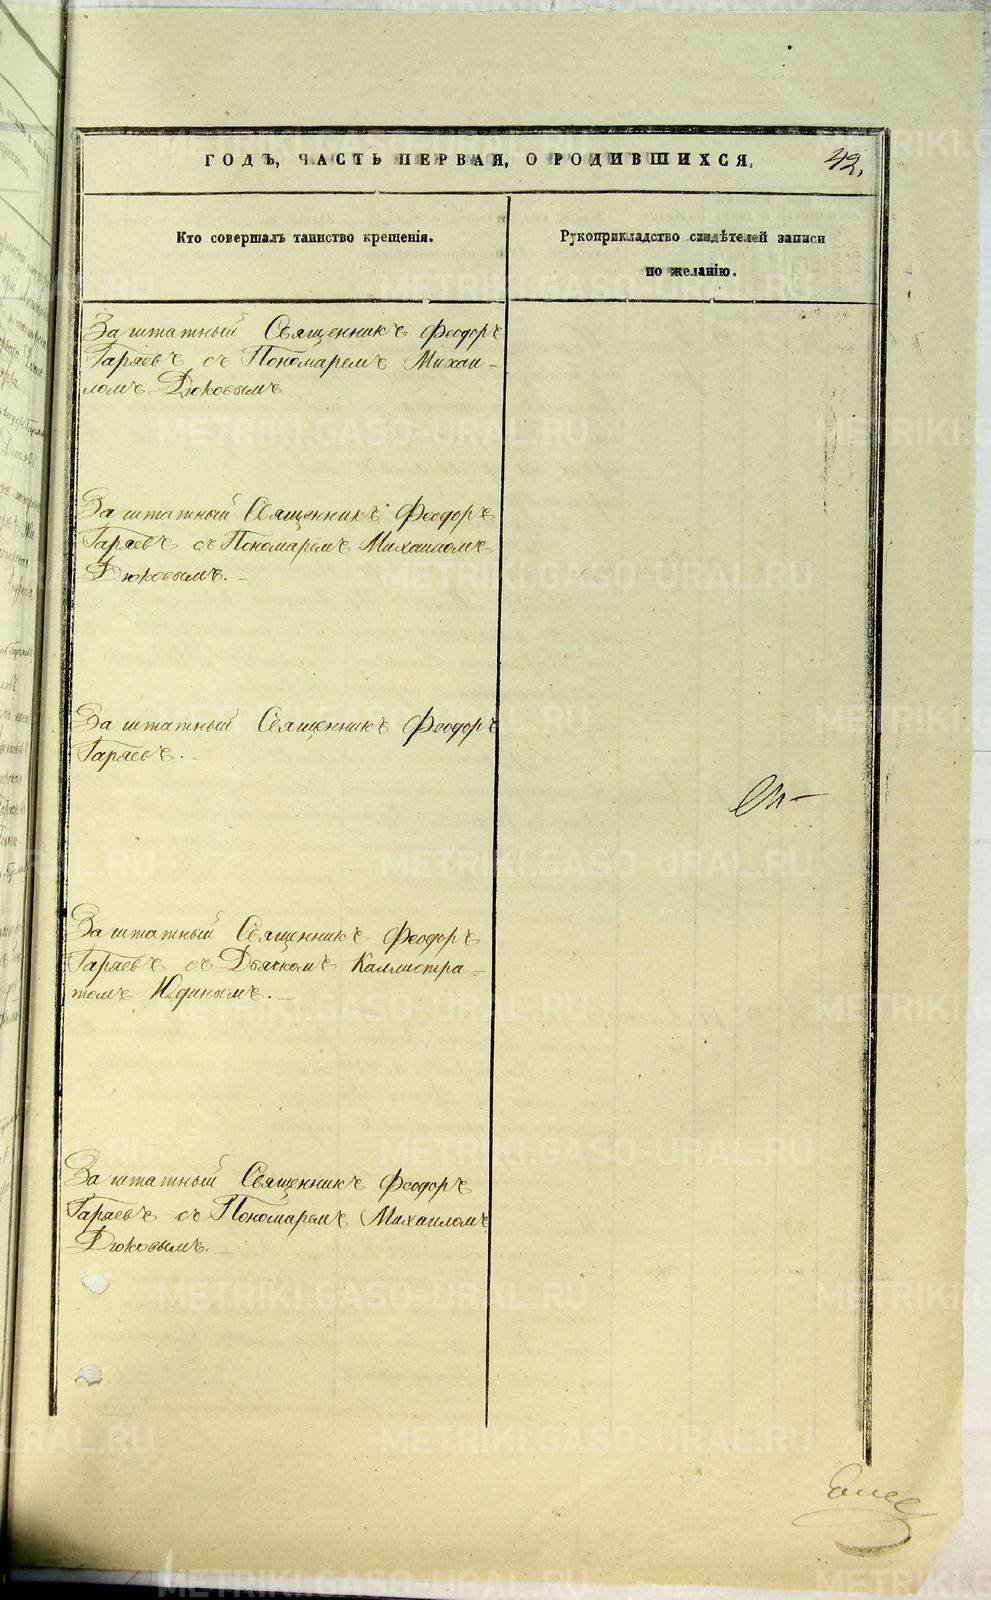 ГОДЪ, ЧАСТЬ ПЕРВАЯ, О РОДИВШИХСЯ.
42.
Кто совершалъ таинство крещенія.
Рукоприкладство свидѣтелей записи
по желанію.
Заштатный Священникъ Феодоръ
Гаряевъ съ Пономаремъ Михаи-
ломъ Дюковымъ
Заштатный Священникъ Феодоръ
Гаряевъ съ Пономаремъ Михаиломъ
Дюковымъ. -
Заштатный Священникъ Феодоръ
Гаряевъ. -
Заштатный Священникъ Феодоръ
Гаряевъ съ Дьячкомъ Каллистра-
томъ Юдинымъ. -
Заштатный Священникъ Феодоръ
Гаряевъ съ Пономаремъ Михаиломъ
Дюковымъ. -
METRIKI.GASO-URAL.RU